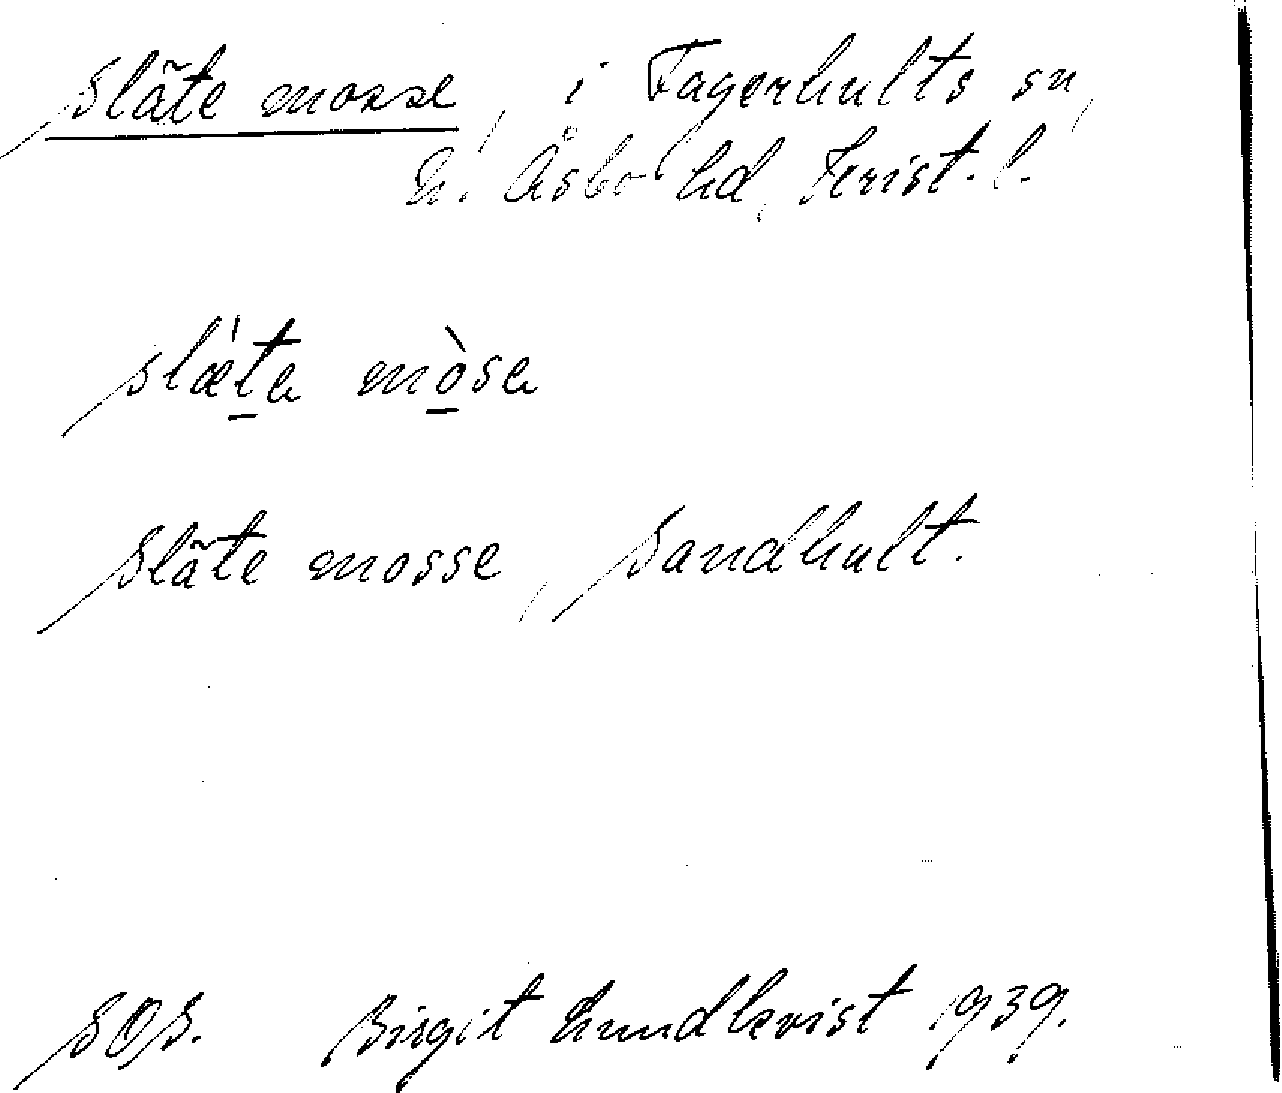 Släte mosse, i Fagerhults sn,
N. Åsbo hd, Krist. l.
slæ̍ta mòsa
Släte mosse, Sandhult.
SOS. Birgit Lundkvist 1939.